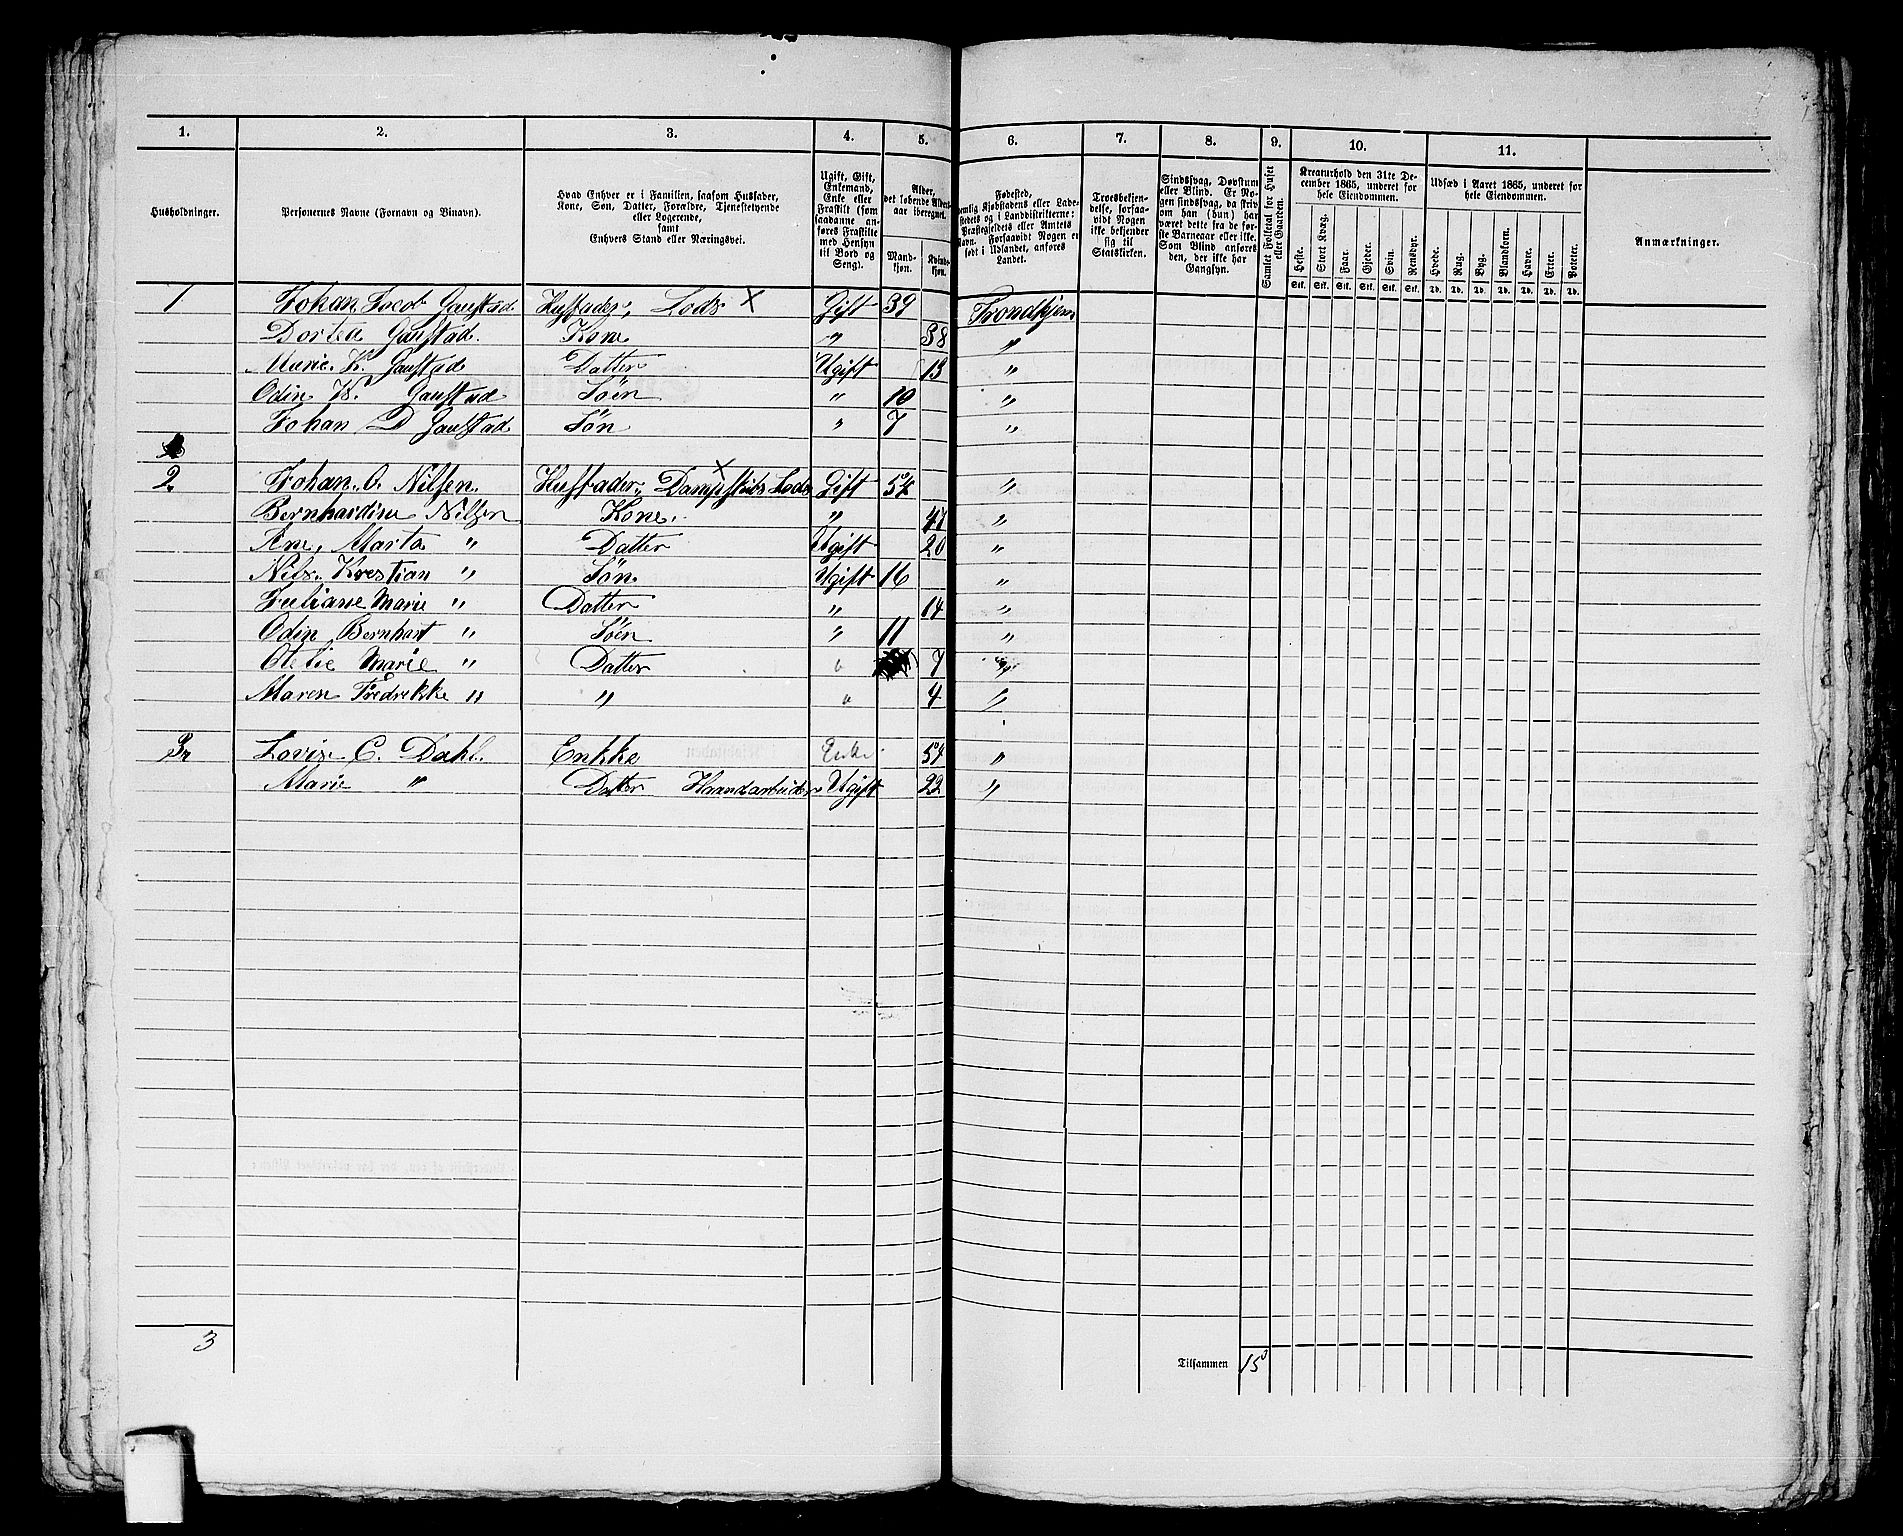 1. 2. 3. 4. 5. 6. 7. 8. 9. 10. 11.
Husholdninger.
Personernes Navne (Fornavn og Binavn).
Hvad Enhver er i Familien, saasom Husfader,
Kone, Søn, Datter, Forældre, Tjenestetyende
eller Logerende,
samt
Enhvers Stand eller Næringsvei.
Ugift, Gift,
Enkemand,
Enke eller
Fraskilt (som
saadanne an-
føres Fraskilte
med Hensyn
til Bord og
Seng).
Alder,
det løbende Alders-
aar iberegnet.
Mand-
kjøn.
Kvinde-
kjøn.
Fødested,
nemlig Kjøbstadens eller Lade-
stedets og i Landdistrikterne:
Præstegjeldets eller Amtets
Navn. Forsaavidt Nogen er
født i Udlandet, anføres
Landet.
Troesbekjen-
delse, forsaa-
vidt Nogen
ikke bekjender
sig til
Statskirken.
Sindssvag, Døvstum
eller Blind. Er No-
gen sindssvag, da skriv
om han (hun) har
været dette fra de før-
ste Barneaar eller ikke.
Som Blind anføres
den, der ikke har
Gangsyn.
Samlet Folketal for Huset
eller Gaarden.
Kreaturhold den 31te De-
cember 1865, underet for
hele Eiendommen.
Heste. Stort Kvæg. Faar. Gjeder. Svin. Rensdyr.
Stk. Stk. Stk. Stk. Stk. Stk.
Udsæd i Aaret 1865, underet for
hele Eiendommen.
Hvede. Rug. Byg. Blandkorn. Havre. Erter. Poteter.
Td. Td. Td. Td. Td. Td. Td.
Anmærkninger.
1 Johan Jacob Gaustad Husfader, Lods x Gift 39 Trondhjem
Dortea Gaustad. Kone " 38 "
Marie K. Gaustad Datter Ugift 13 "
Odin K. Gaustad Søen " 10 "
Johan D Gaustad Søn " 7 "
2. Johan. O. Nilsen. Husfader, Dampskibs Lods x Gift 54 "
Bernhardine Nilsen Kone. " 47 "
Ane, Marta " Datter Ugift 20 "
Nils. Krestian " Søn. Ugift 16 "
Juliane Marie " Datter " 14 "
Odin Bernhart " Søen " 11 "
Marie " Datter " 7 "
Maren Fredrekke " " " 4 "
3 Lovise C. Dahl. Enkke Enke 54 "
Marie " Datter Haandarbeider Ugift 22 "
3
Tilsammen 15